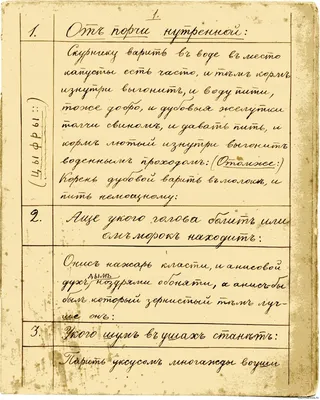 1.
1. Отъ порчи нутренной:
Скурнику варить въ воде въместо
капусты есть часто, и тѣмъ кормъ
изнутри выгонитъ, и воду пити,
тоже добро, и дубовыя желутки
толчи свиномъ, и давать пить, и
кормъ лютый изнутри выгонитъ
воденнымъ проходомъ: (Отомже:)
Корень дубовой варить въмолокѣ, и
пить немощному:
(Цыфры:)
2. Аще укого голова болитъ или
омъморокъ находитъ:
Анисъ нажаръ класти, и анисовой
духъ дымъ ноздрями обоняти, а анисъ бы
былъ который зернистый тѣмъ луч-
ше онъ:
3. Укого шумъ въ ушахъ станетъ:
Парить уксусомъ многажды воуши